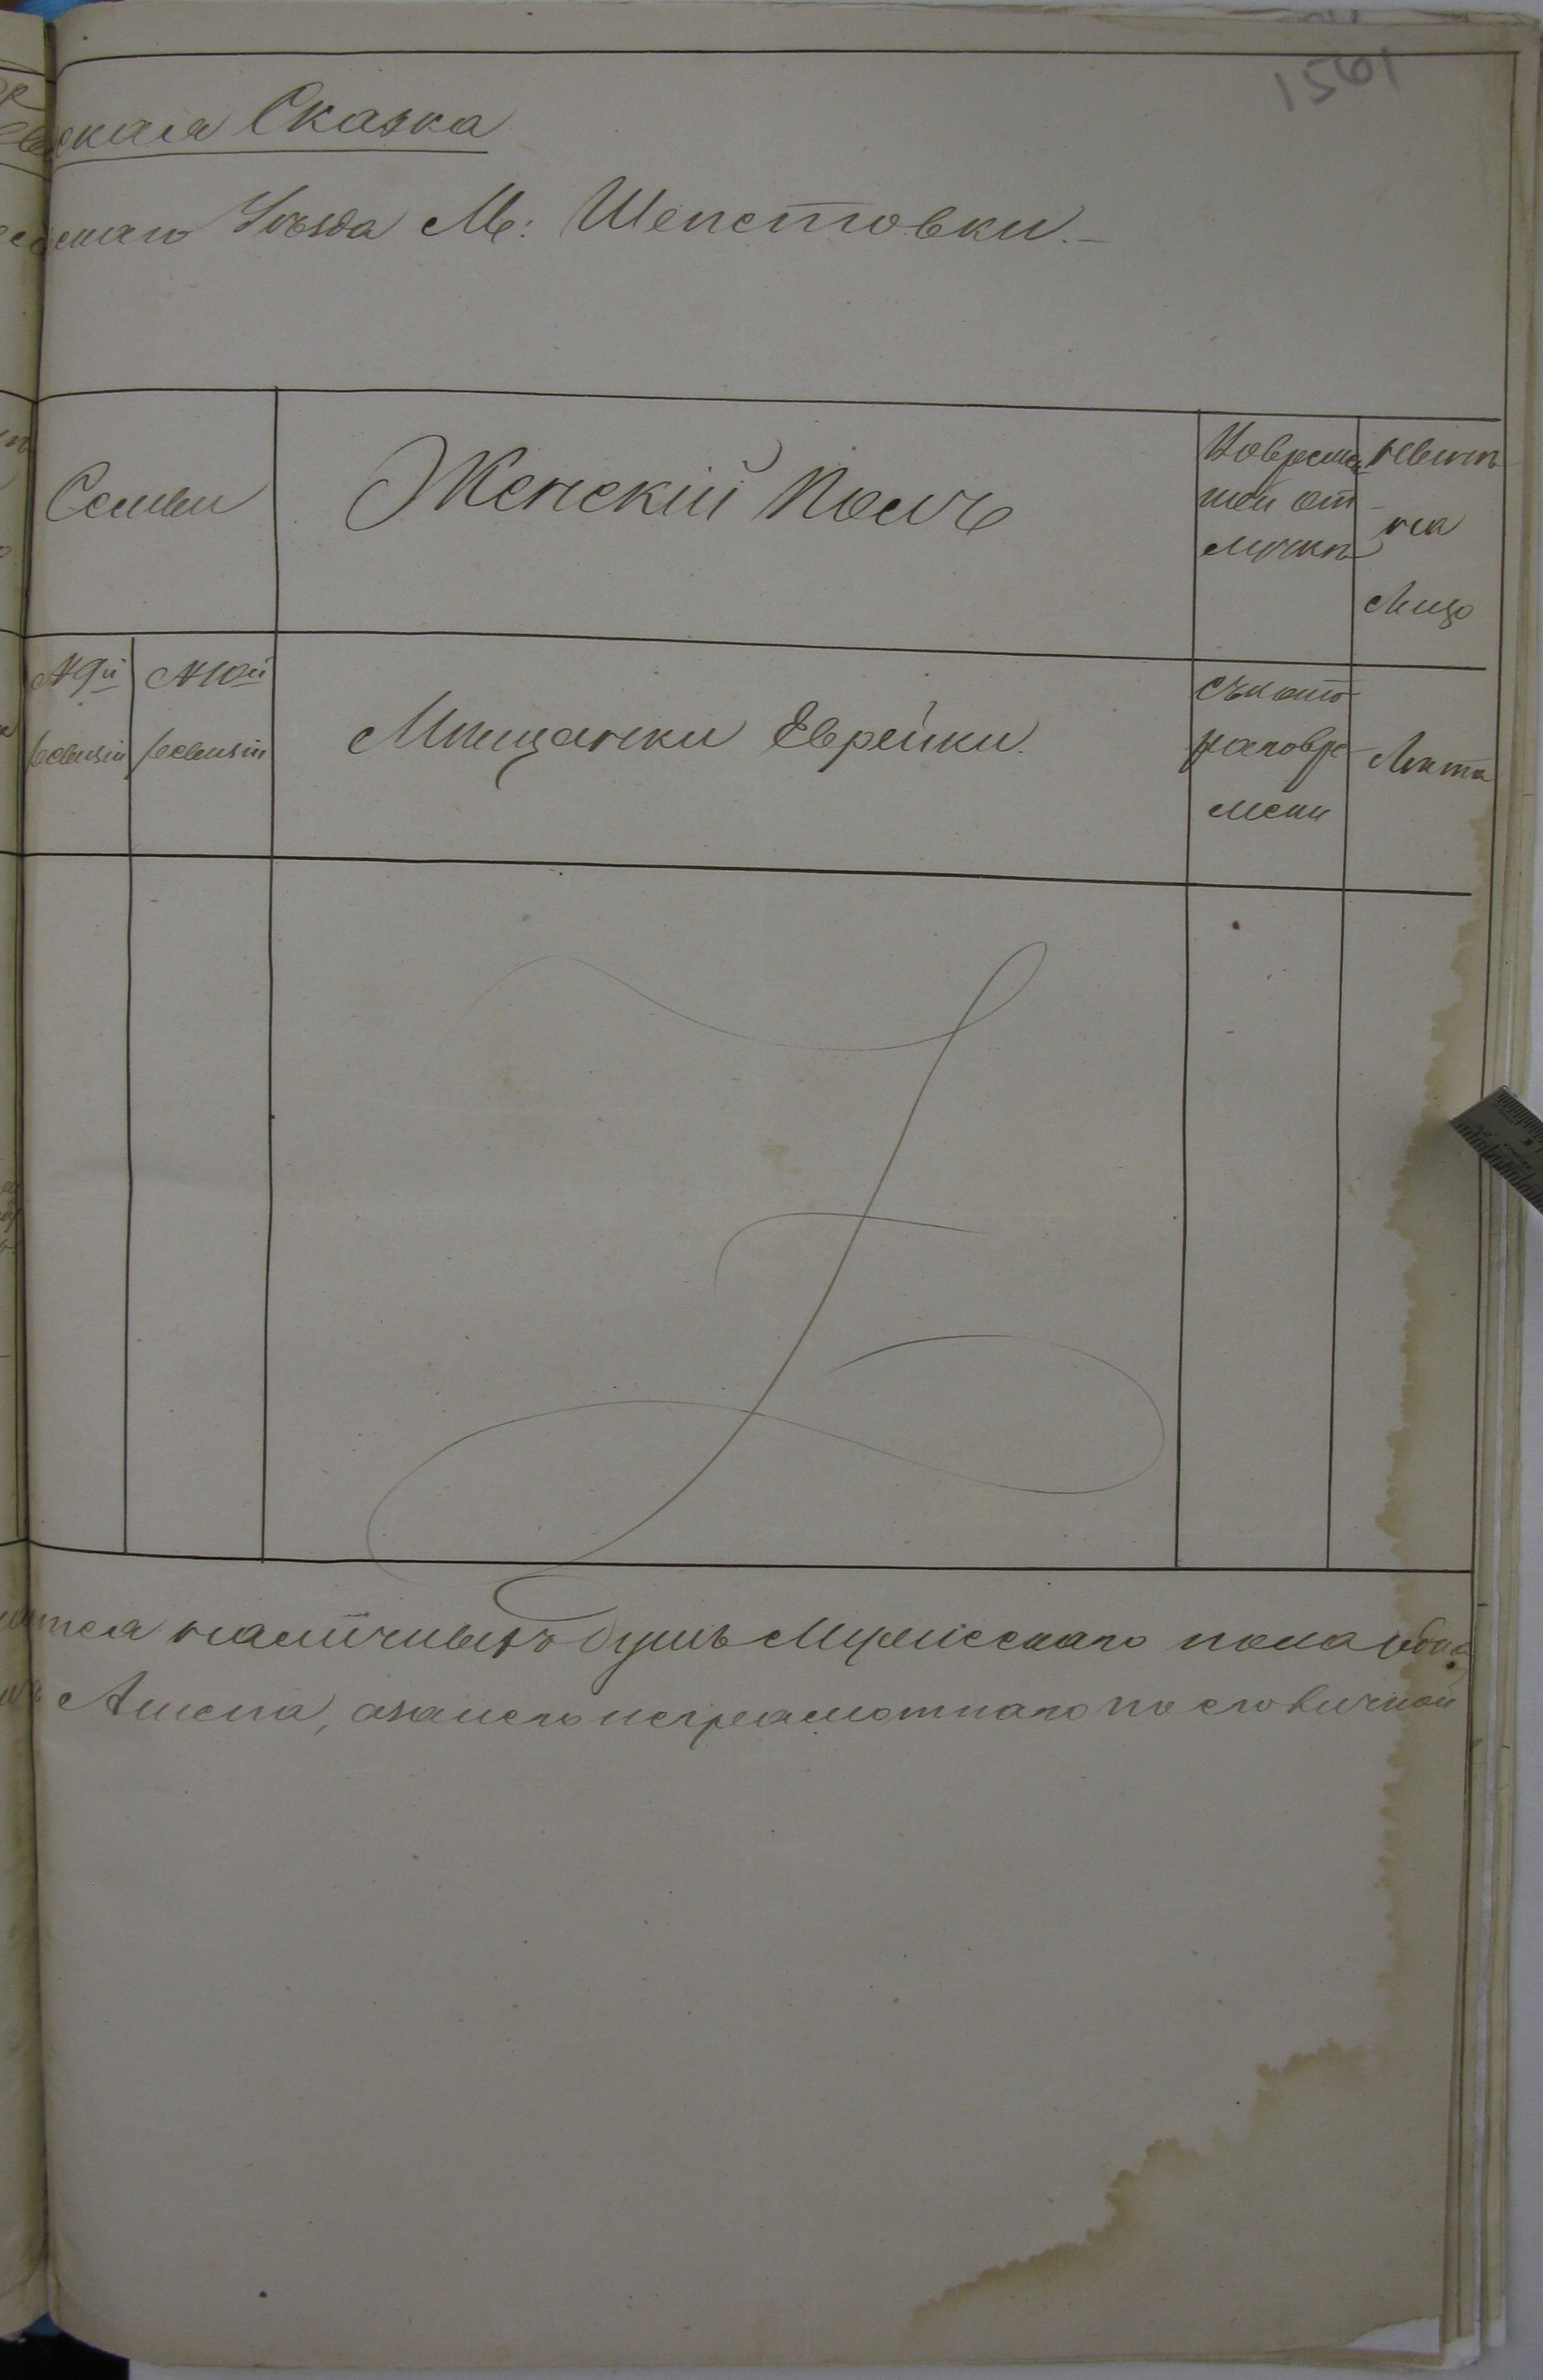 1561
ская Сказка
скаго Уѣзда М: Шепетовки.-
Семьи
Женскій Полъ
Вовремен
ной от
лучкѣ
нынѣ
на
Лицо
№ 9й
ревизіи
№ 10й
ревизіи
Мѣщанки Еврейки.
Съкото
раговре
мени
Лѣта
наличныхъ душъ Мужескаго пола одна
азанего неграмотнаго по его личной